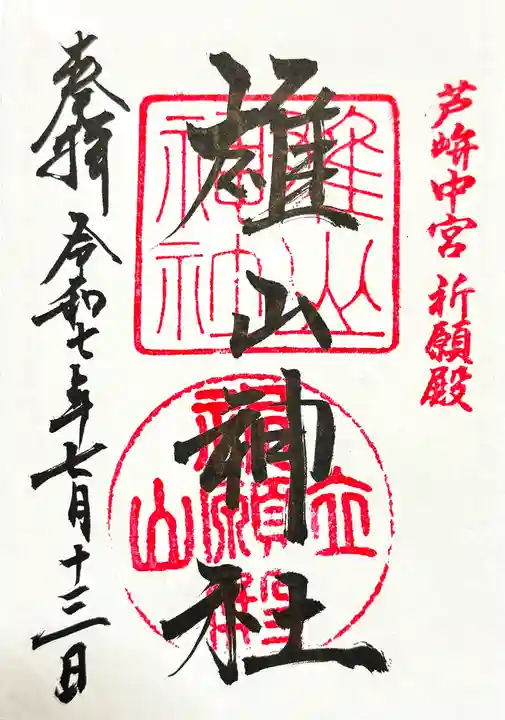 芦峅中宮 祈願殿
雄山神社
奉拝 令和七年七月十三日
雄山
神社
立山
祈願殿